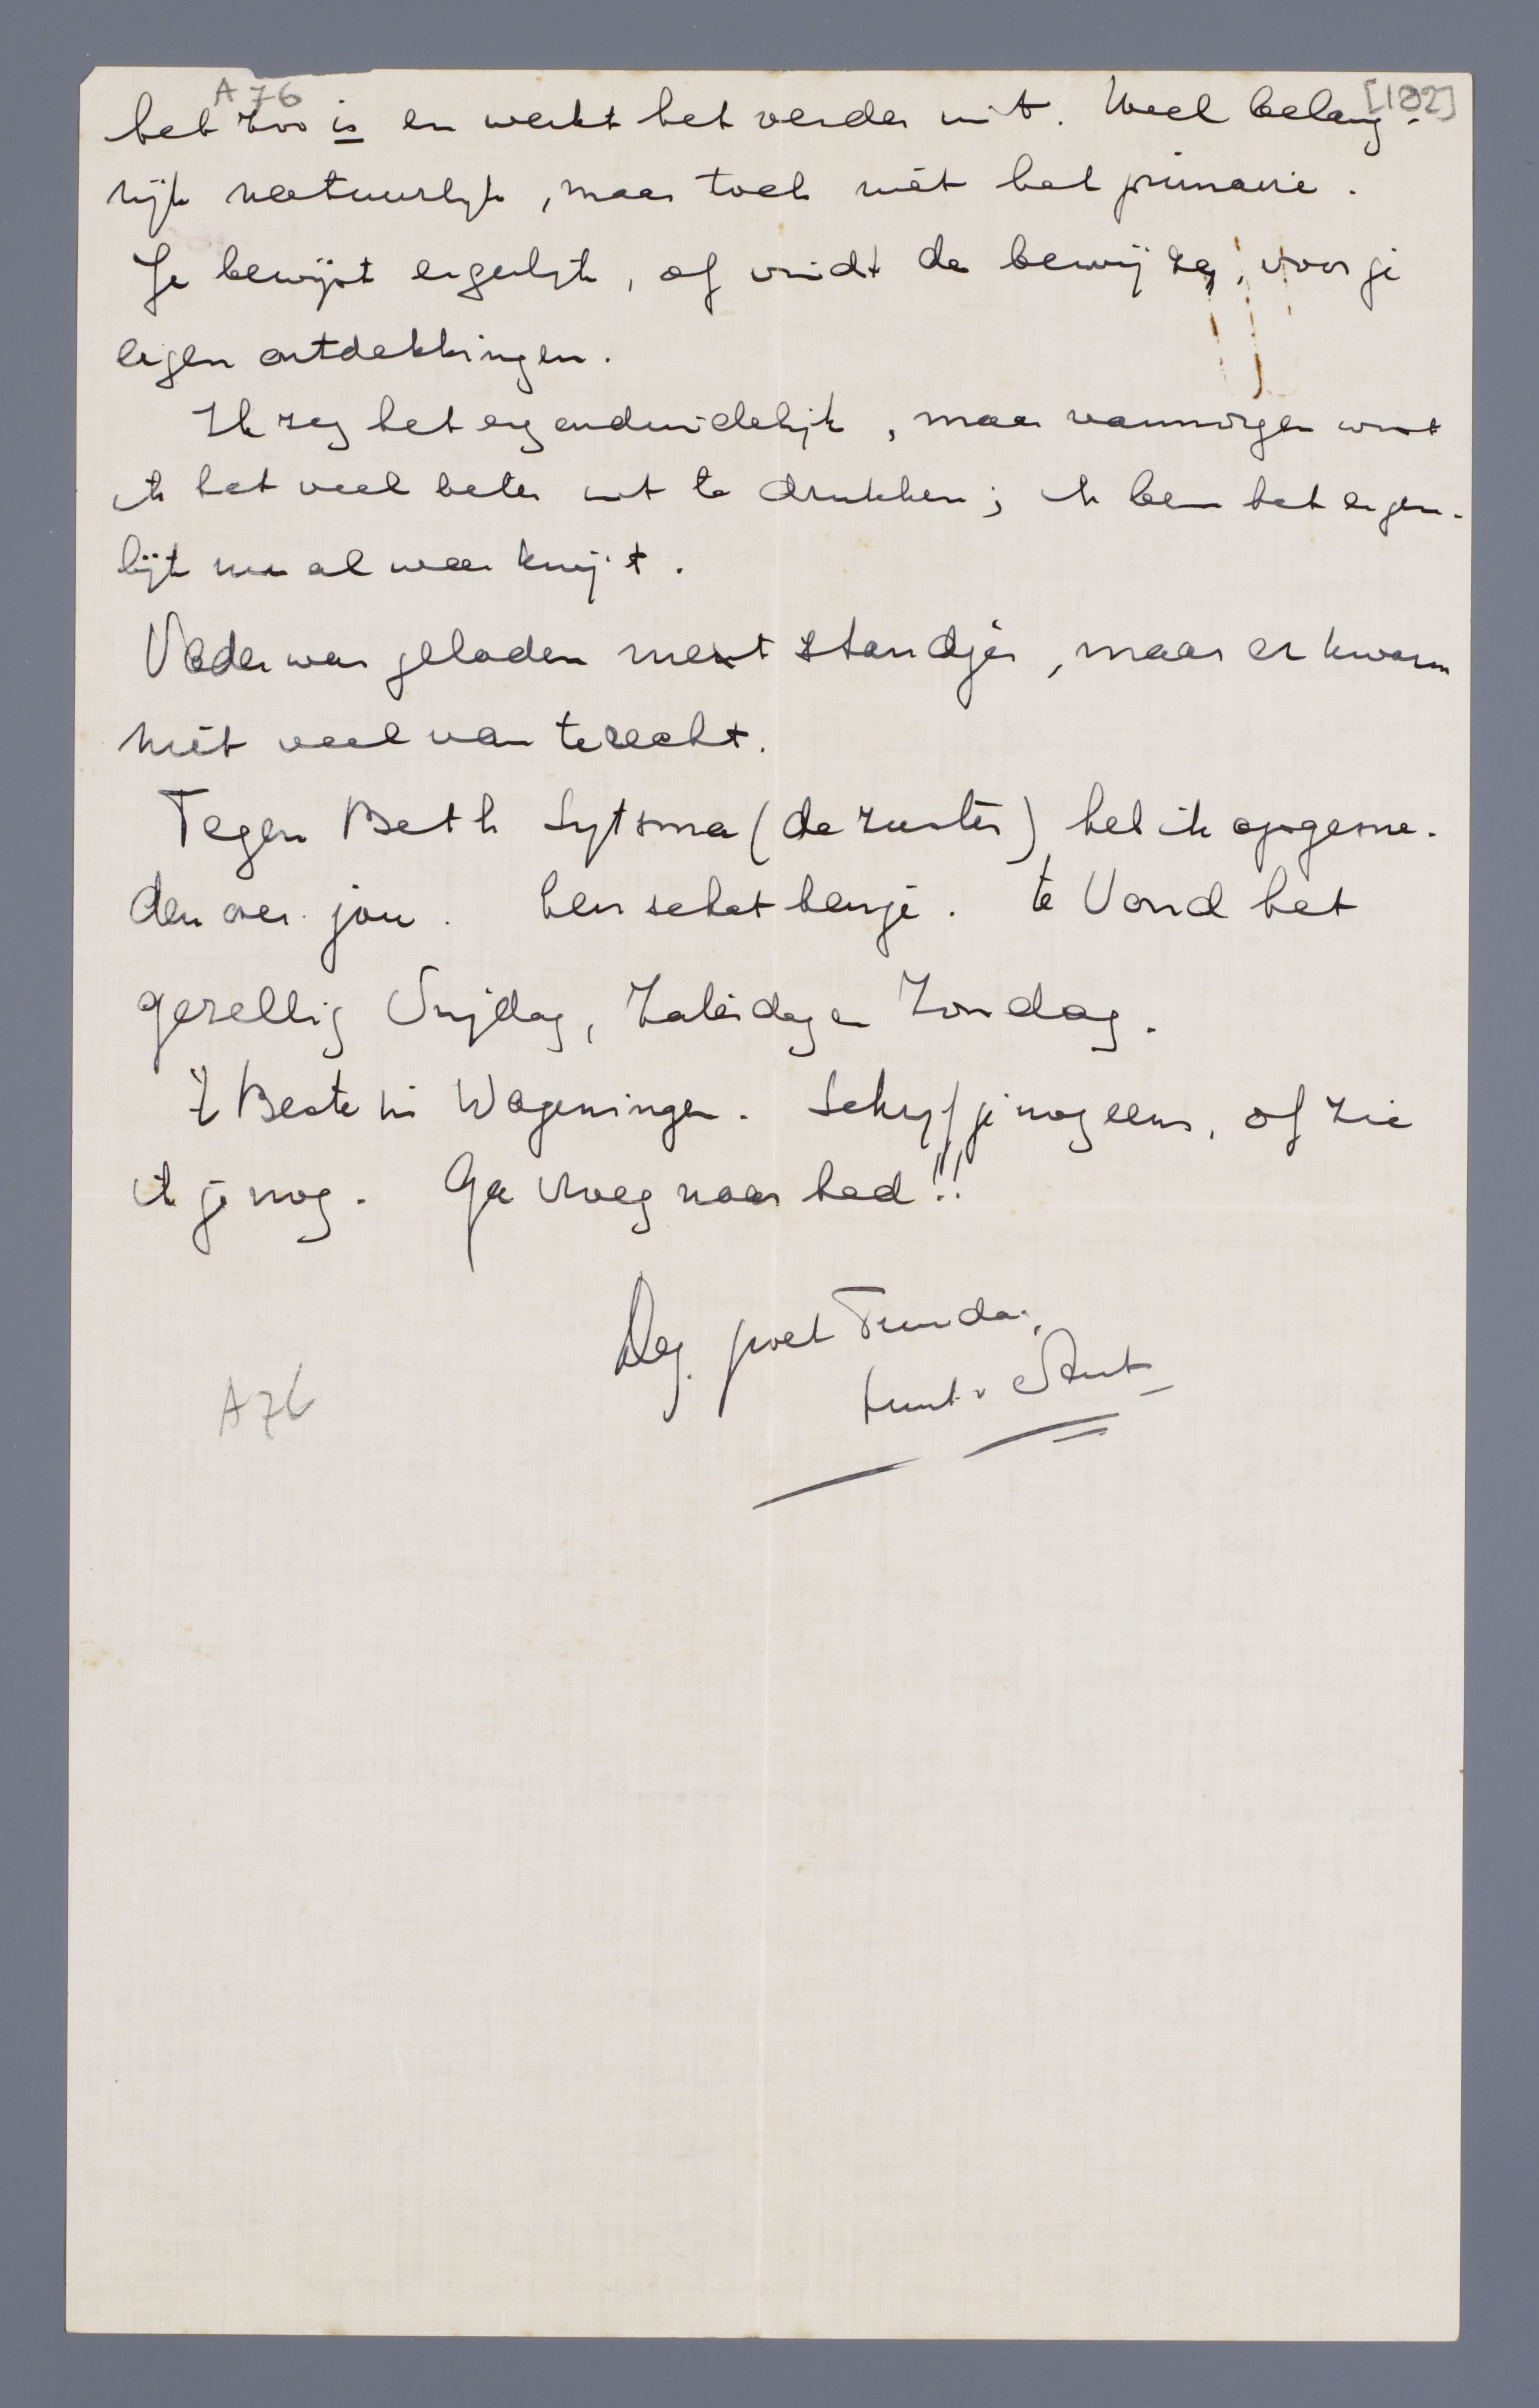 A 76 [182]
het zoo is en werkt het verder uit. Heel belang-
rijk natuurlijk, maar toch niét het primaire.
Je bewijst eigenlijk, of vindt de bewijzen, voor je
eigen ontdekkingen.
Ik zeg het erg onduidelijk, maar vanmorgen wist
ik het veel beter uit te drukken; ik ben het eigen-
lijk nu al weer kwijt.
Vader was geladen met standjes, maar er kwam
niet veel van terecht.
Tegen Beth Sytsma (de zuster) heb ik opgesne-
den over jou. Een schat ben je. Ik Vond het
gezellig Vrijdag, Zaterdag en Zondag.
't Beste in Wageningen. Schrijf je nog eens, of zie
ik je nog. Ga vroeg naar bed!!
Dag poet
A76